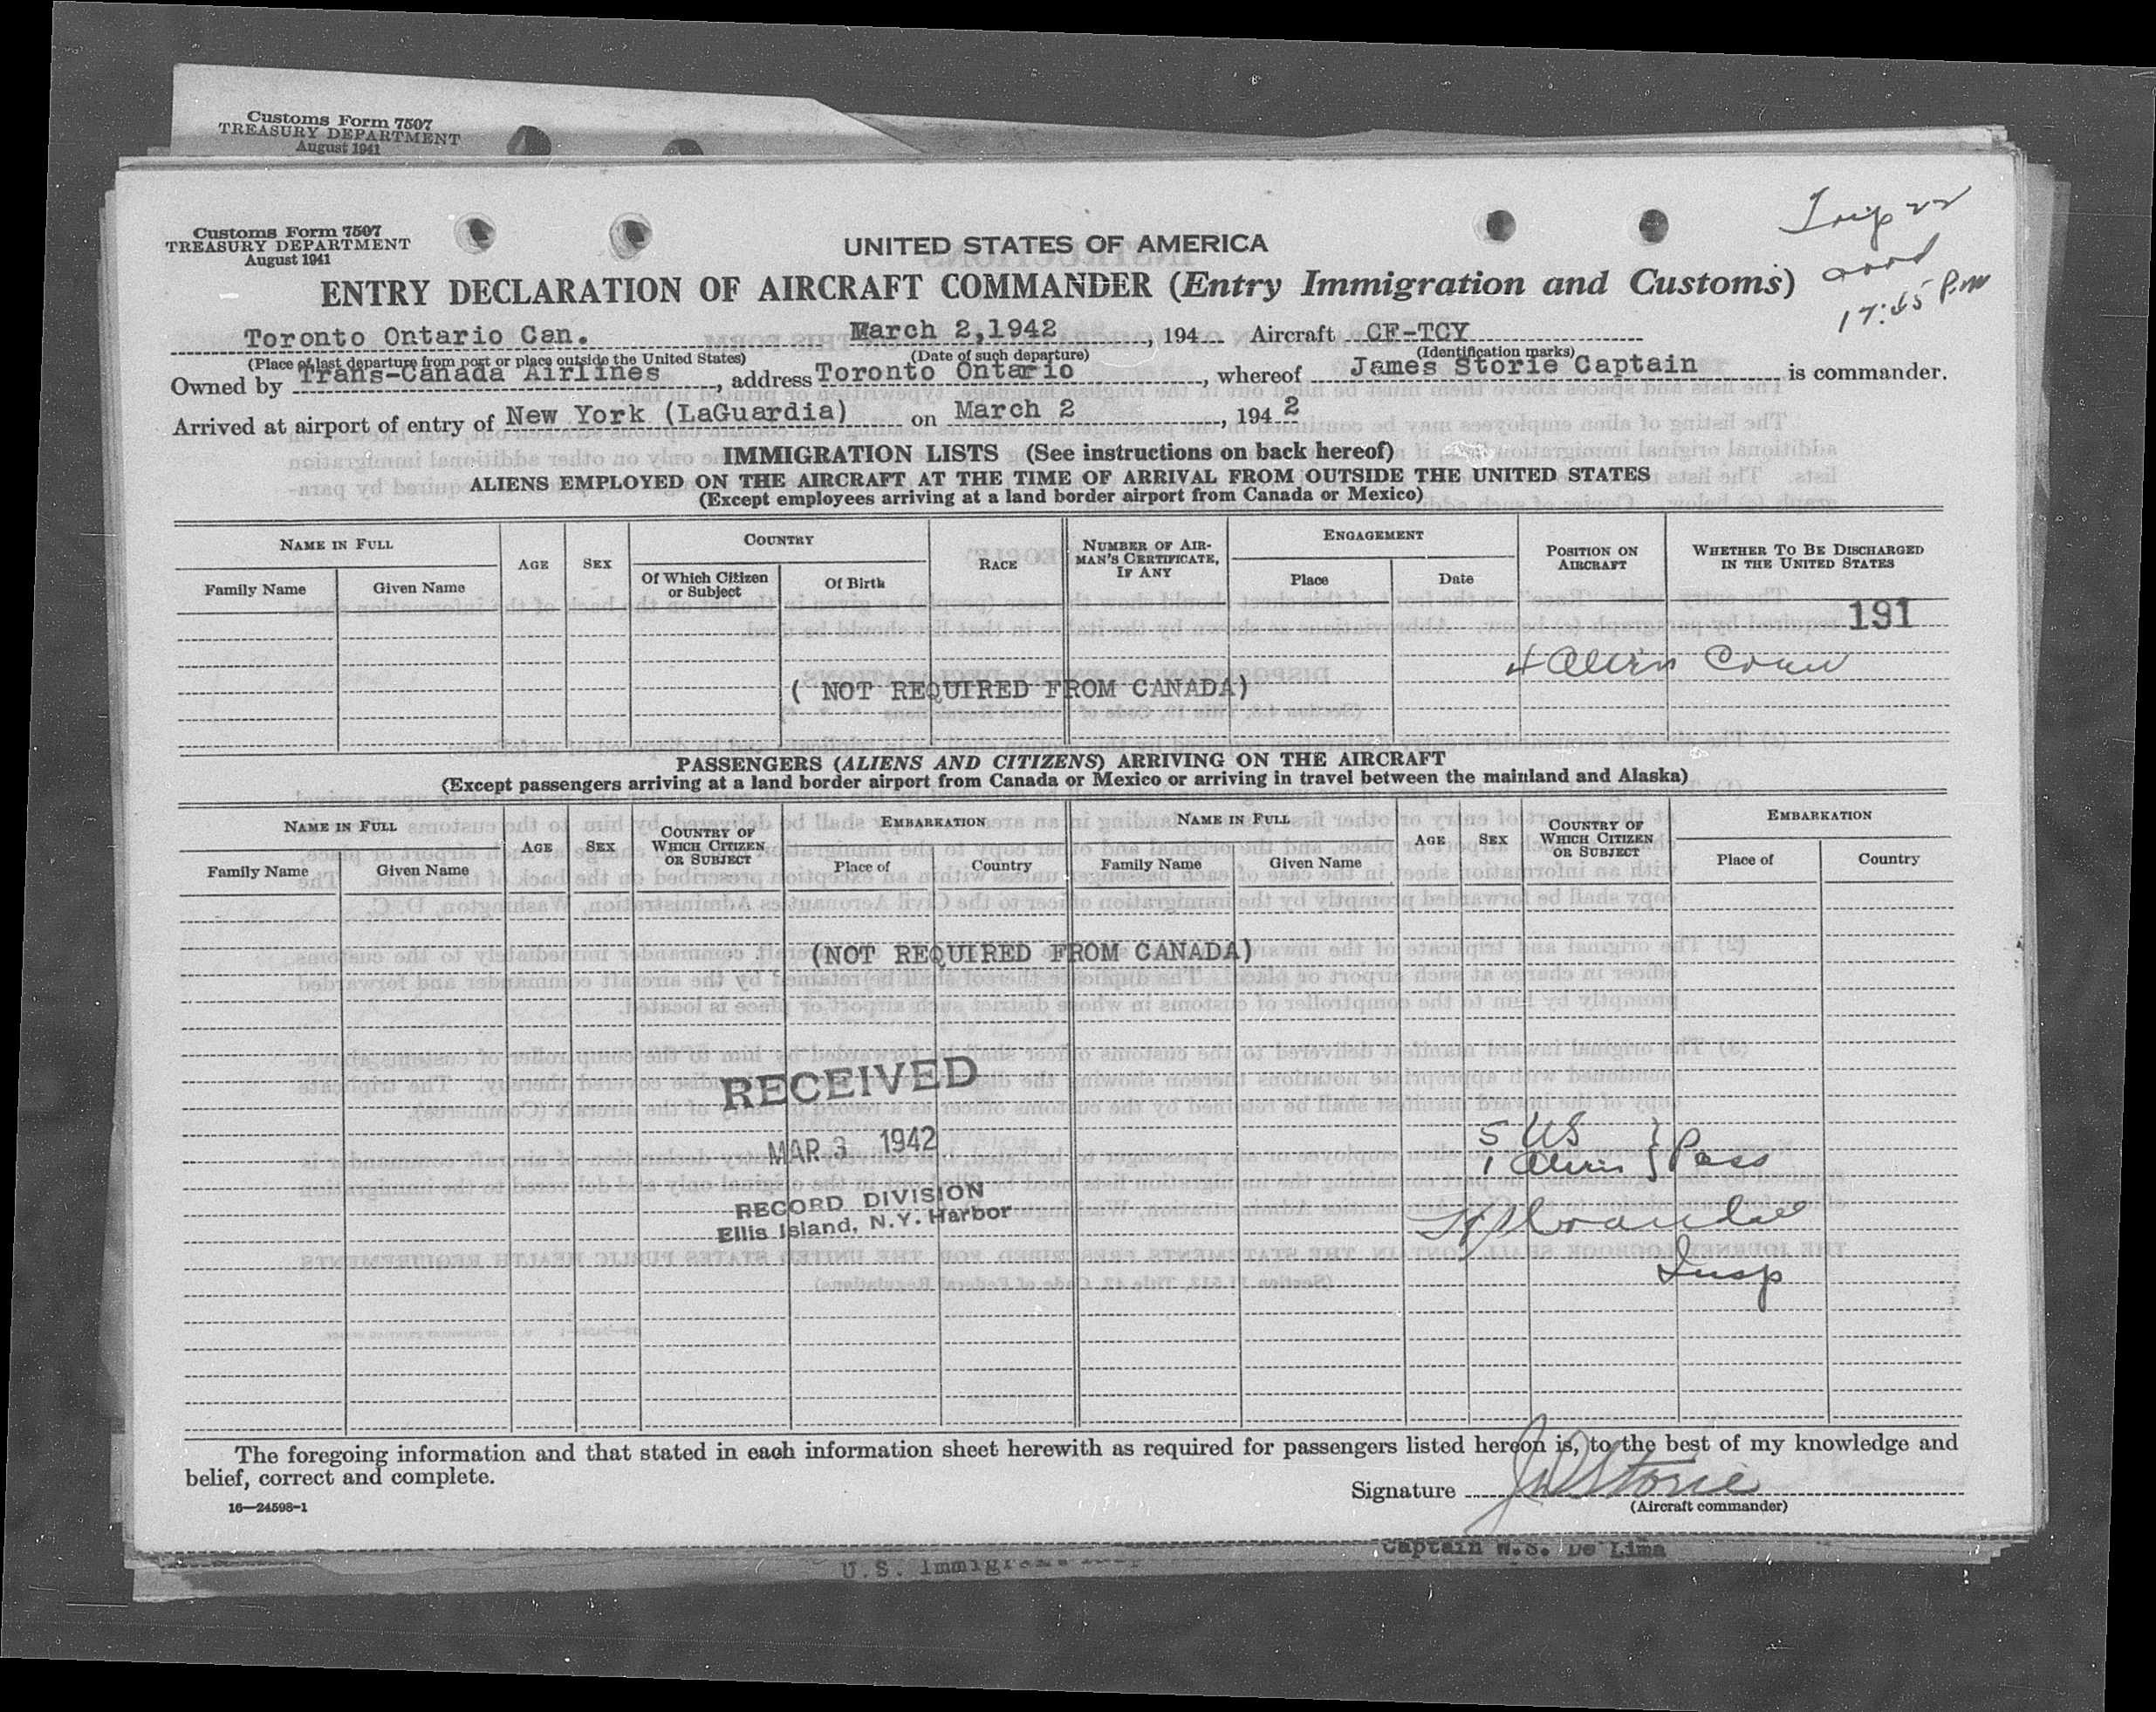 Customs Form 7507
TREASURY DEPARTMENT
August 1941
Customs Form 7507
TREASURY DEPARTMENT
August 1941
UNITED STATES OF AMERICA
ENTRY DECLARATION OF AIRCRAFT COMMANDER (Entry Immigration and Customs)
P.M
Toronto Ontario Can. March 2,1942, 194 Aircraft CF-TCY
(Place of last departure from port or place outside the United States) (Date of such departure) (Identification marks)
Owned by Trans-Canada Airlines, address Toronto Ontario, whereof James Storie Captain is commander.
Arrived at airport of entry of New York (LaGuardia) on March 2, 1942
IMMIGRATION LISTS (See instructions on back hereof)
ALIENS EMPLOYED ON THE AIRCRAFT AT THE TIME OF ARRIVAL FROM OUTSIDE THE UNITED STATES
(Except employees arriving at a land border airport from Canada or Mexico)
NAME IN FULL AGE SEX COUNTRY RACE NUMBER OF AIRMAN'S CERTIFICATE, IF ANY ENGAGEMENT POSITION ON AIRCRAFT WHETHER TO BE DISCHARGED IN THE UNITED STATES
Family Name Given Name Of Which Citizen or Subject Of Birth Place Date
191
4 alien Crew
( NOT REQUIRED FROM CANADA)
PASSENGERS (ALIENS AND CITIZENS) ARRIVING ON THE AIRCRAFT
(Except passengers arriving at a land border airport from Canada or Mexico or arriving in travel between the mainland and Alaska)
NAME IN FULL AGE SEX COUNTRY OF WHICH CITIZEN OR SUBJECT EMBARKATION NAME IN FULL AGE SEX COUNTRY OF WHICH CITIZEN OR SUBJECT EMBARKATION
Family Name Given Name Place of Country Family Name Given Name Place of Country
(NOT REQUIRED FROM CANADA)
RECEIVED
MAR 3 1942
RECORD DIVISION
Ellis Island, N.Y. Harbor
5 US
1 alien } Pass
Insp
The foregoing information and that stated in each information sheet herewith as required for passengers listed hereon is, to the best of my knowledge and
belief, correct and complete.
Signature JW Storie
16—24598-1 (Aircraft commander)
Captain W.S. De Lima
U.S.